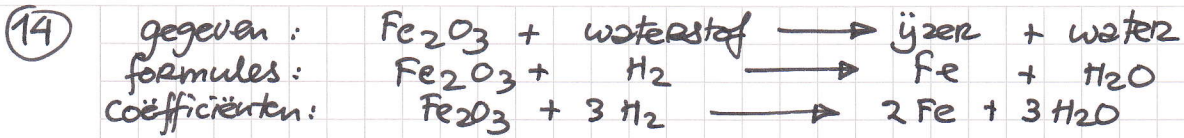 14 gegeven : Fe2O3 + waterstof → ijzer + water
formules : Fe2O3 + H2 → Fe + H2O
coëfficiënten : Fe2O3 + 3 H2 → 2 Fe + 3 H2O